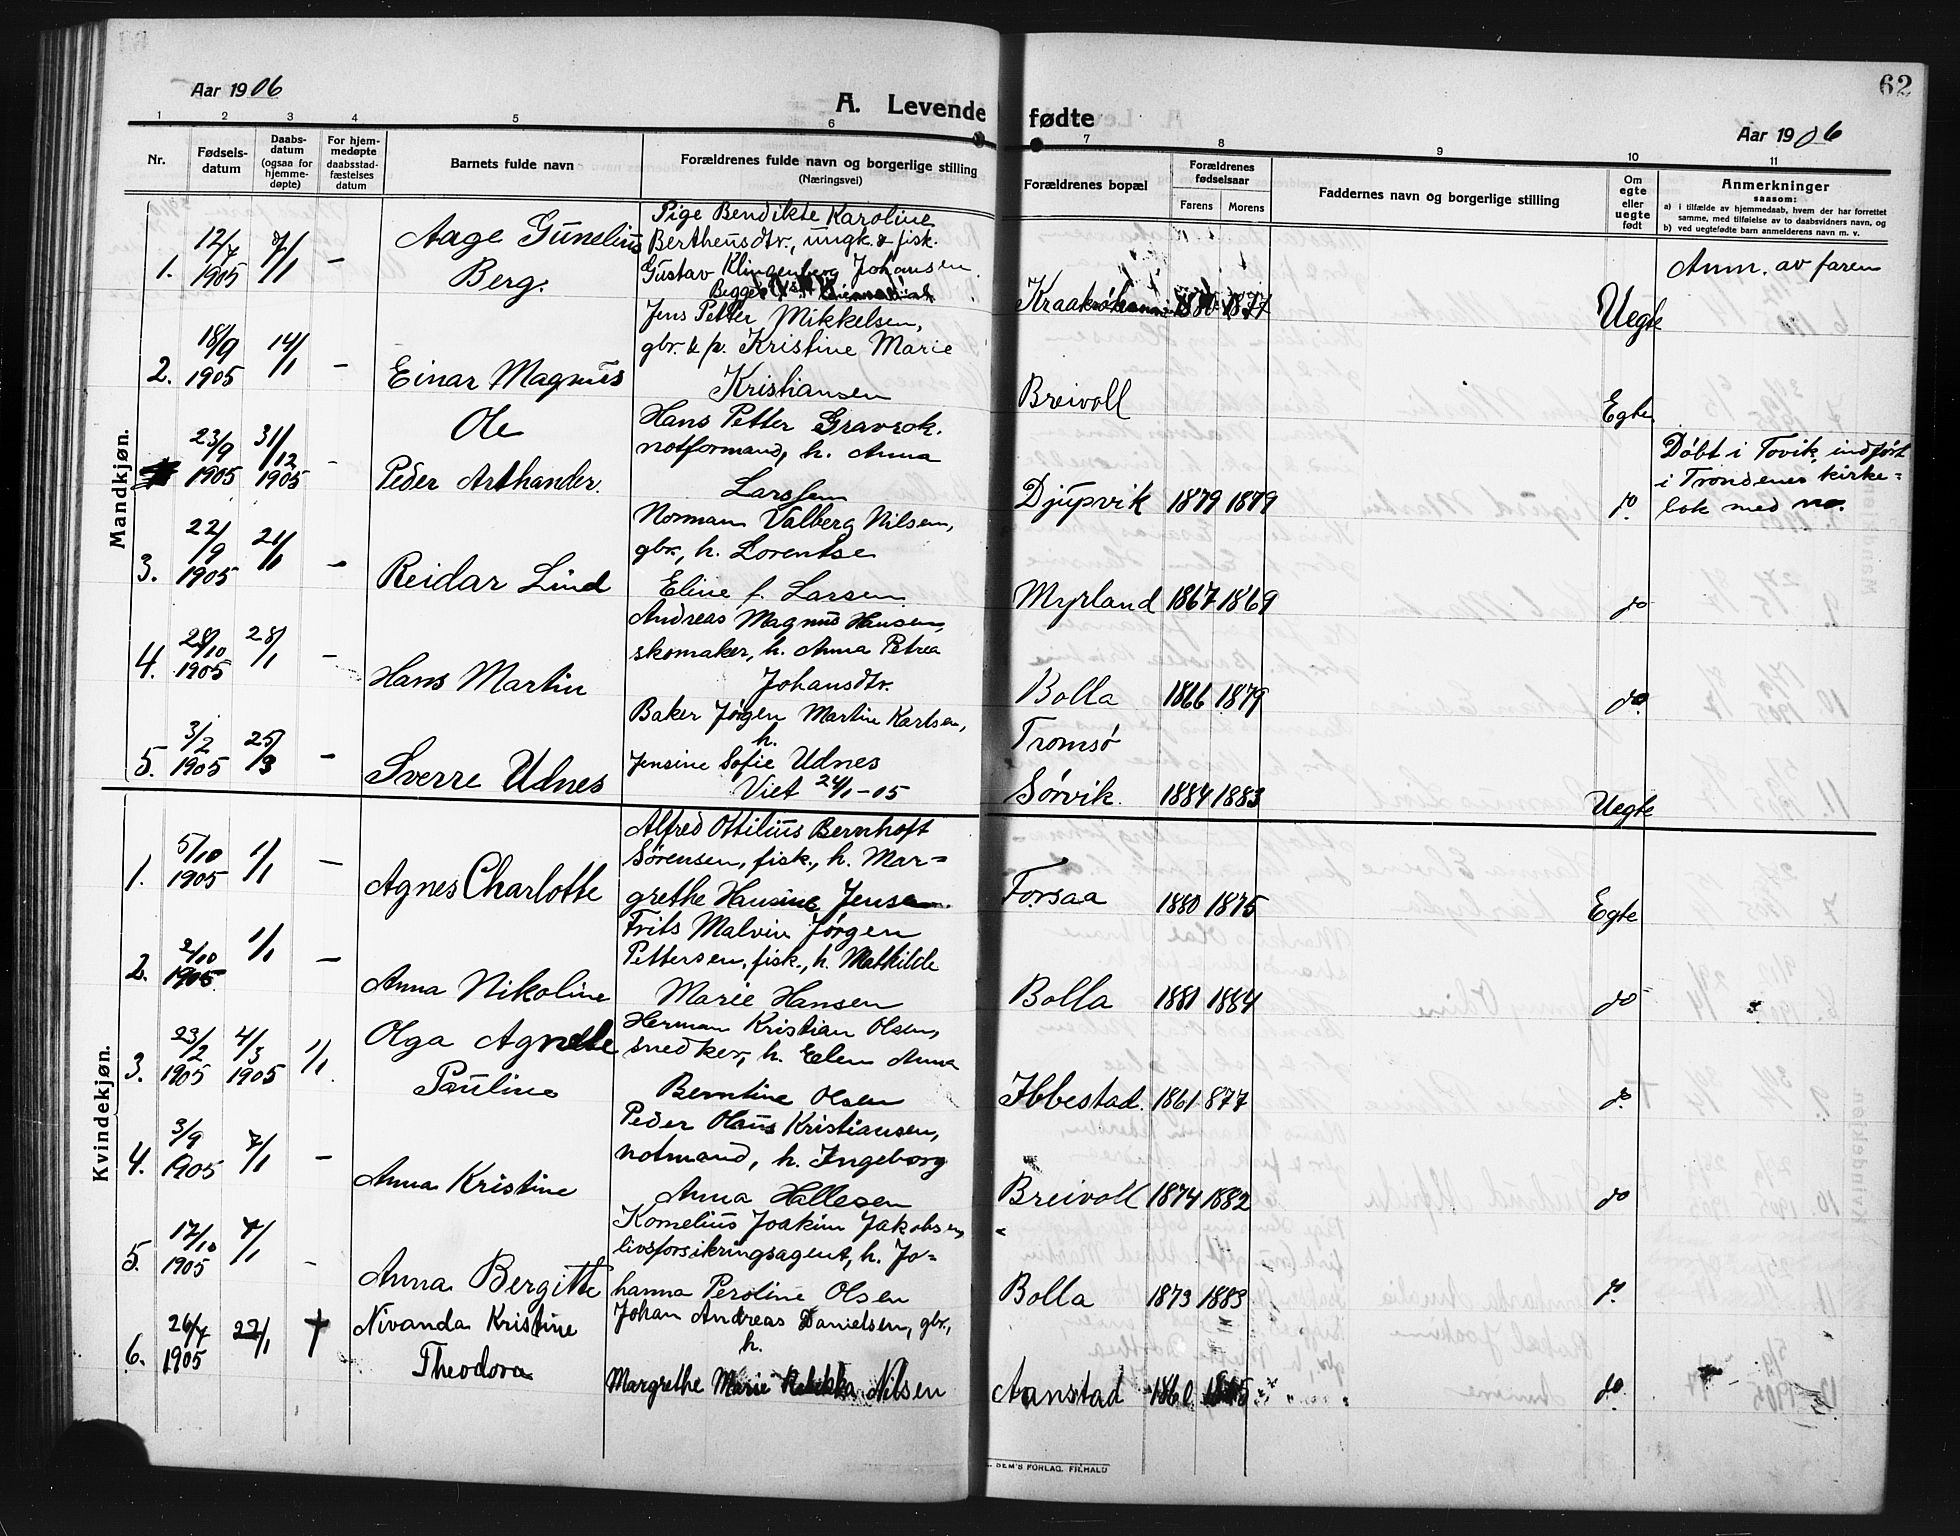 62
Aar 1906
A. Levende fødte
Aar 1906
1 2 3 4 5 6 7 8 9 10 11
Nr.
Fødsels-
datum
Daabs-
datum
(ogsaa for
hjemme-
døpte)
For hjem-
medøpte
daabsstad-
fæstelses
datum
Barnets fulde navn
Forældrenes fulde navn og borgerlige stilling
(Næringsvei)
Forældrenes bopæl
Forældrenes
fødselsaar
Farens Morens
Faddernes navn og borgerlige stilling
Om
egte
eller
uegte
født
Anmerkninger
saasom:
a) i tilfælde av hjemmedaab, hvem der har forrettet
samme, med tilføielse av to daabsvidners navn, og
b) ved uegtefødte barn anmelderens navn m. v.
Mandkjøn.
1. 12/7 1905 7/1 -
Aage Gunelius
Berg.
Pige Bendikte Karoline
Bertheusdtr., ungk. & fisk.
Gustav Klingenberg Johansen
Begge
1880 1877
Uegte
Anm. av faren
2. 18/9 1905 14/1 -
Einar Magnus
Jens Petter Mikkelsen,
gbr. & p. Kristine Marie
Kristiansen
Breivoll
Egte
23/9 1905 31/12 1905 -
Ole
Peder Arthander.
Hans Petter Gravrok.
notformand, h. Anna
Larssen
Djupvik 1879 1879
do.
Døbt i Tovik, indført
i Trondenes kirke-
bok med no.
3. 22/9 1905 21/1 -
Reidar Lind
Norman Valberg Nilsen,
gbr., h. Lorentse
Eline f. Larsen
Myrland 1867 1869
do
4. 28/10 1905 28/1 -
Hans Martin
Andreas Magnus Hansen,
skomaker, h. Anna Petrea
Johansdtr.
Bolla 1866 1879
do.
5. 3/2 1905 25/3 -
Sverre Udnes
Baker Jørgen Martin Karlsen,
h.
Jensine Sofie Udnes
Viet 24/1-05
Tromsø
Sørvik. 1884 1883
Uegte
Kvindekjøn.
1. 5/10 1905 1/1 -
Agnes Charlotte
Alfred Ottilius Bernhoft
Sørensen, fisk., h. Mar-
grethe Hansine Jensen.
Forsaa 1880 1875
Egte
2. 2/10 1905 1/1 -
Anna Nikoline
Frits Malvin Jørgen
Pettersen, fisk., h. Mathilde
Marie Hansen
Bolla 1881 1884
do
3. 23/2 1905 4/3 1905 1/1
Olga Agnete
Pauline
Herman Kristian Olsen,
snedker, h. Elen Anna
Berntine Olsen
Ibbestad. 1861 877
do.
4. 3/9 1905 7/1 -
Anna Kristine
Peder Olaus Kristiansen,
notmand, h. Ingeborg
Anna Hallesen
Breivoll 1874 1882
do
5. 17/10 1905 7/1 -
Anna Bergitte
Kornelius Joakim Jakobsen,
livsforsikringsagent, h. Jo-
hanna Peroline Olsen
Bolla 1873 1883
do.
6. 26/7 1905 22/1 †
Nivanda Kristine
Theodora
Johan Andreas Danielsen, gbr.,
h.
Margrethe Marie Rebikka Nilsen
Aanstad 1860
do.
SEM'S FORLAG. FR.HALD